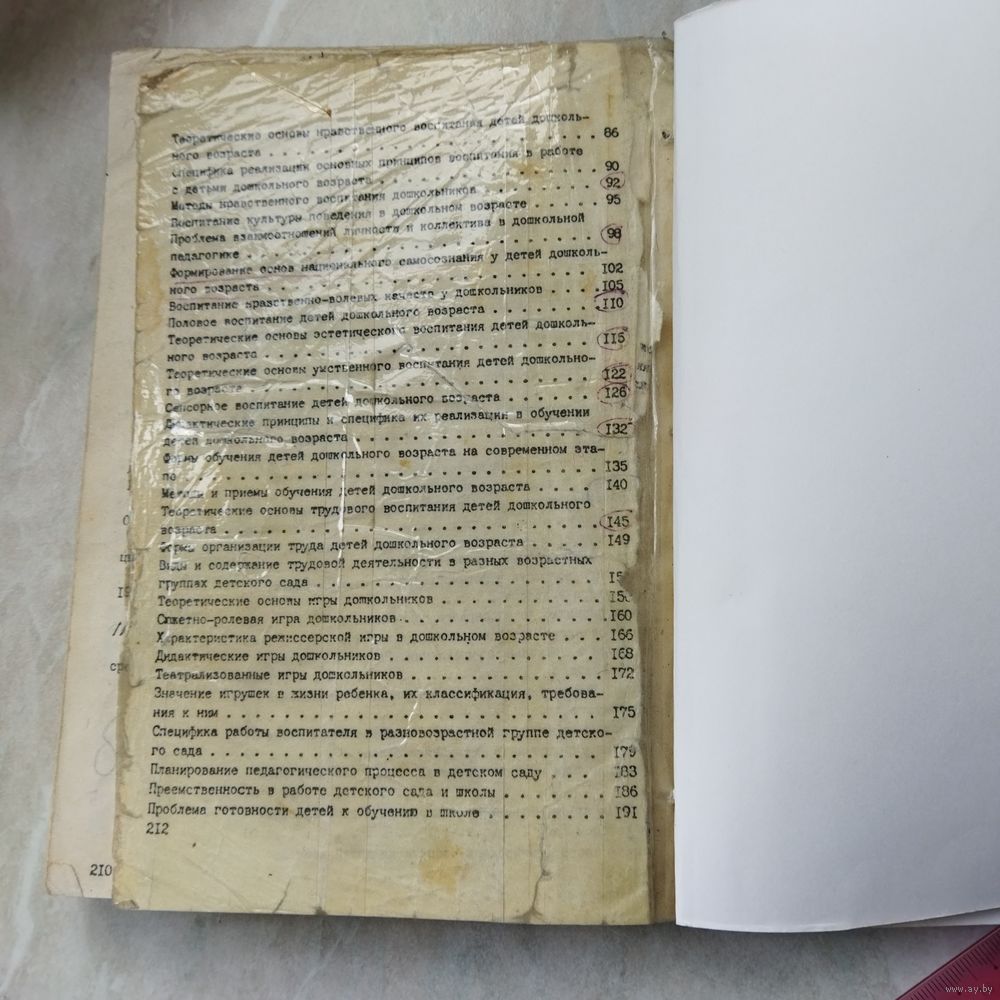 Теоретические основы нравственного воспитания детей дошколь-
ного возраста . . . . . . . . . . . . . . . . . . . . . 86
Специфика реализации основных принципов воспитания в работе
с детьми дошкольного возраста . . . . . . . . . . . . . 90
Методы нравственного воспитания дошкольников . . . . . . 92
Воспитание культуры поведения в дошкольном возрасте . . . . . 95
Проблема взаимоотношений личности и коллектива в дошкольной
педагогике . . . . . . . . . . . . . . . . . . . . . . 98
Формирование основ национального самосознания у детей дошколь-
ного возраста . . . . . . . . . . . . . . . . . . . . . I02
Воспитание нравственно-волевых качеств у дошкольников . . . . I05
Половое воспитание детей дошкольного возраста . . . . . . . II0
Теоретические основы эстетического воспитания детей дошколь-
ного возраста . . . . . . . . . . . . . . . . . . . . . II5
Теоретические основы умственного воспитания детей дошкольно-
го возраста . . . . . . . . . . . . . . . . . . . . . . I22
Сенсорное воспитание детей дошкольного возраста . . . . . . I26
Дидактические принципы и специфика их реализации в обучении
детей дошкольного возраста . . . . . . . . . . . . . . . I32
Формы обучения детей дошкольного возраста на современном эта-
пе . . . . . . . . . . . . . . . . . . . . . . . . . . I35
Методы и приемы обучения детей дошкольного возраста . . . . I40
Теоретические основы трудового воспитания детей дошкольного
возраста . . . . . . . . . . . . . . . . . . . . . . . I45
Формы организации труда детей дошкольного возраста . . . . . I49
Виды и содержание трудовой деятельности в разных возрастных
группах детского сада . . . . . . . . . . . . . . . . .
Теоретические основы игры дошкольников . . . . . . . . . .
Сюжетно-ролевая игра дошкольников . . . . . . . . . . . . I60
Характеристика режиссерской игры в дошкольном возрасте . . . I66
Дидактические игры дошкольников . . . . . . . . . . . . . I68
Театрализованные игры дошкольников . . . . . . . . . . . . I72
Значение игрушек в жизни ребенка, их классификация, требова-
ния к ним . . . . . . . . . . . . . . . . . . . . . . . I75
Специфика работы воспитателя в разновозрастной группе детско-
го сада . . . . . . . . . . . . . . . . . . . . . . . . I79
Планирование педагогического процесса в детском саду . . . . I83
Преемственность в работе детского сада и школы . . . . . . . I86
Проблема готовности детей к обучению в школе . . . . . . . . I9I
212
210
www.ay.by